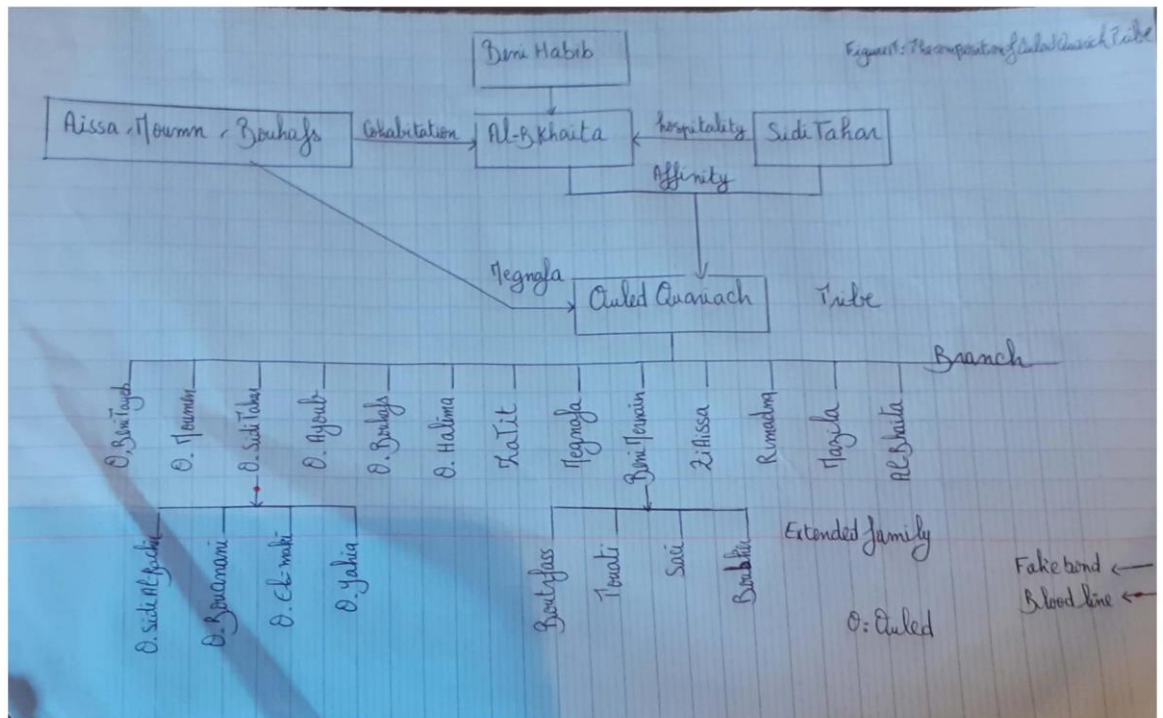 Figure1: The composition of Ouled Quariach Tribe
Beni Habib
Aissa, Moumn, Bouhafs
Cohabitation
Al-Bkhaita
hospitality
Sidi Tahar
Affinity
Megnafa
Ouled Quariach
Tribe
Branch
O. Beni Tayeb
O. Moumen
O. Sidi Tahar
O. Ayoub
O. Bouhafs
O. Halima
ZaTit
Megnafa
Beni Mernain
ZiAissa
Rimadna
Mazila
Al-Bhaita
O. Sidi Al-Bachir
O. Bouanani
O. El-maki
O. Yahia
Boutrfass
Touati
Saci
Boubkir
Extended family
Fake bond
Blood line
O: Ouled